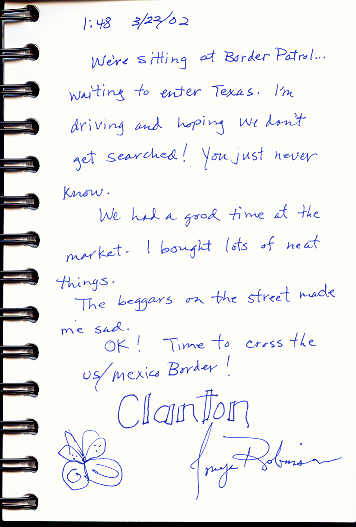 1:48 3/22/02
We're sitting at Border Patrol...
waiting to enter Texas. I'm
driving and hoping we don't
get searched! You just never
know.
We had a good time at the
market. I bought lots of neat
things.
The beggars on the street made
me sad.
OK! Time to cross the
US/Mexico Border!
Clanton
Robinson